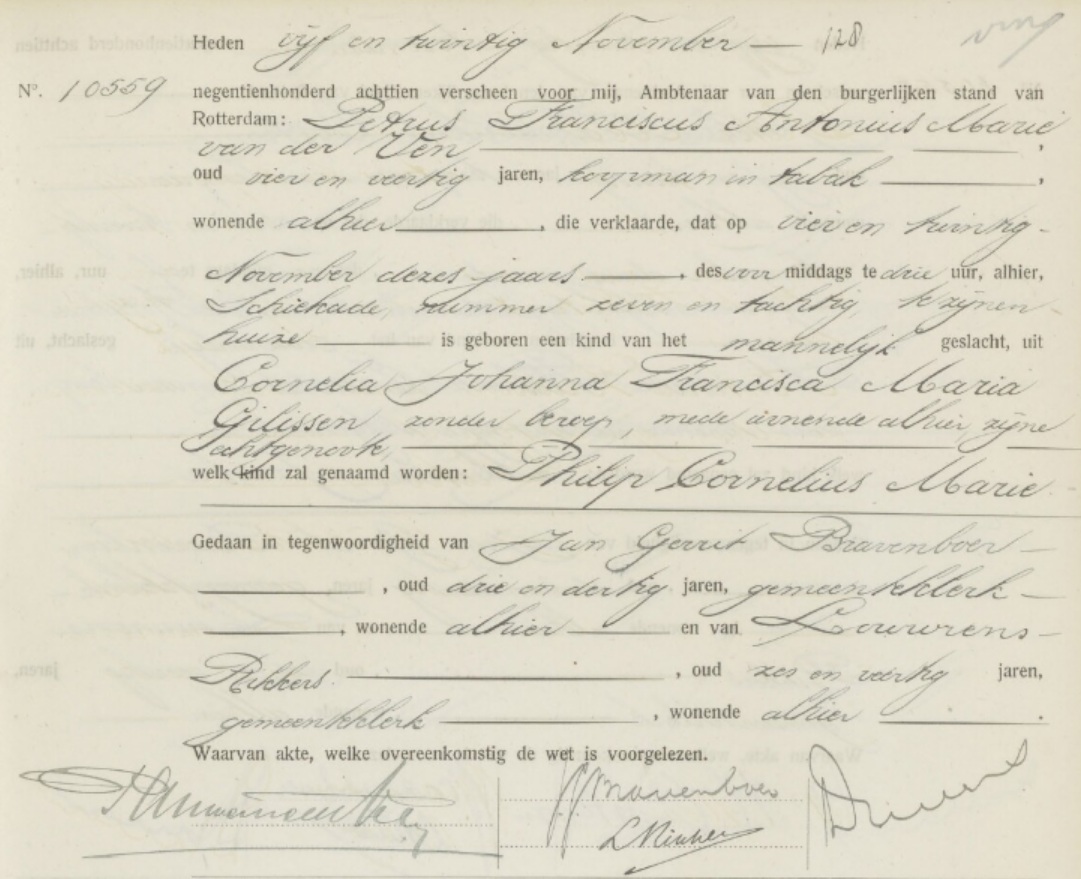 Heden vijf en twintig November — 128
N°. 10559 negentienhonderd achttien verscheen voor mij, Ambtenaar van den burgerlijken stand van
Rotterdam: Petrus Franciscus Antonius Marie
van der Ven,
oud vier en veertig jaren, koopman in tabak,
wonende alhier, die verklaarde, dat op vier en twintig
November dezes jaars, des voor middags te drie uur, alhier,
Schiekade, nummer zeven en tachtig te zijnen
huize is geboren een kind van het mannelijk geslacht, uit
Cornelia Johanna Francisca Maria
Gilissen zonder beroep, mede wonende alhier, zijne
echtgenoote,
welk kind zal genaamd worden: Philip Cornelius Marie
Gedaan in tegenwoordigheid van Jan Gerrit Bravenboer
, oud drie en dertig jaren, gemeenteklerk
, wonende alhier en van Louwrens
Rikkers, oud zes en veertig jaren,
gemeenteklerk, wonende alhier.
Waarvan akte, welke overeenkomstig de wet is voorgelezen.
JGBravenboer
LRikkers